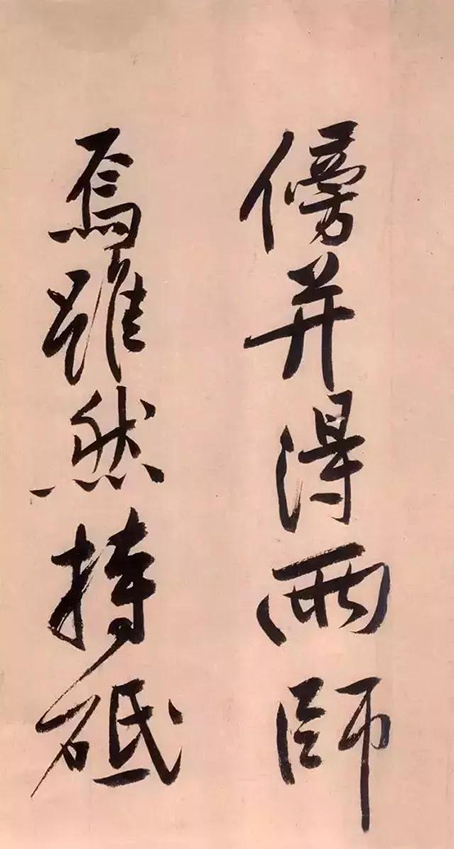 傍并得兩師
焉雖然持砥